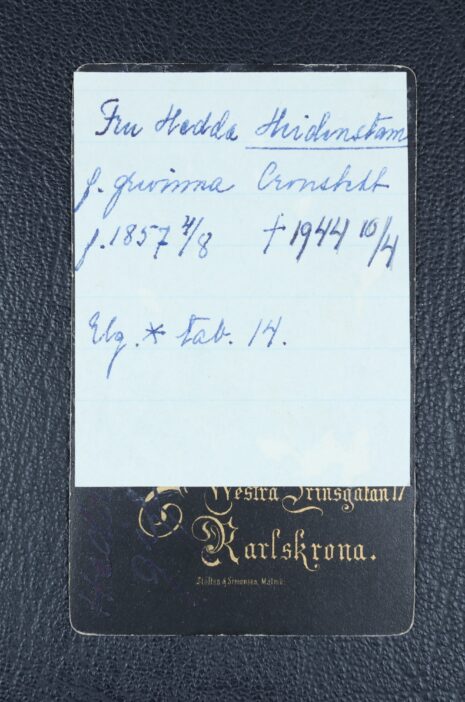 Fru Hedda Heidenstam
f. grevinna Cronstedt
f. 1857 4/8 † 1944 10/4
Elg. * tab. 14.
Westra Prinsgatan 17
Karlskrona.